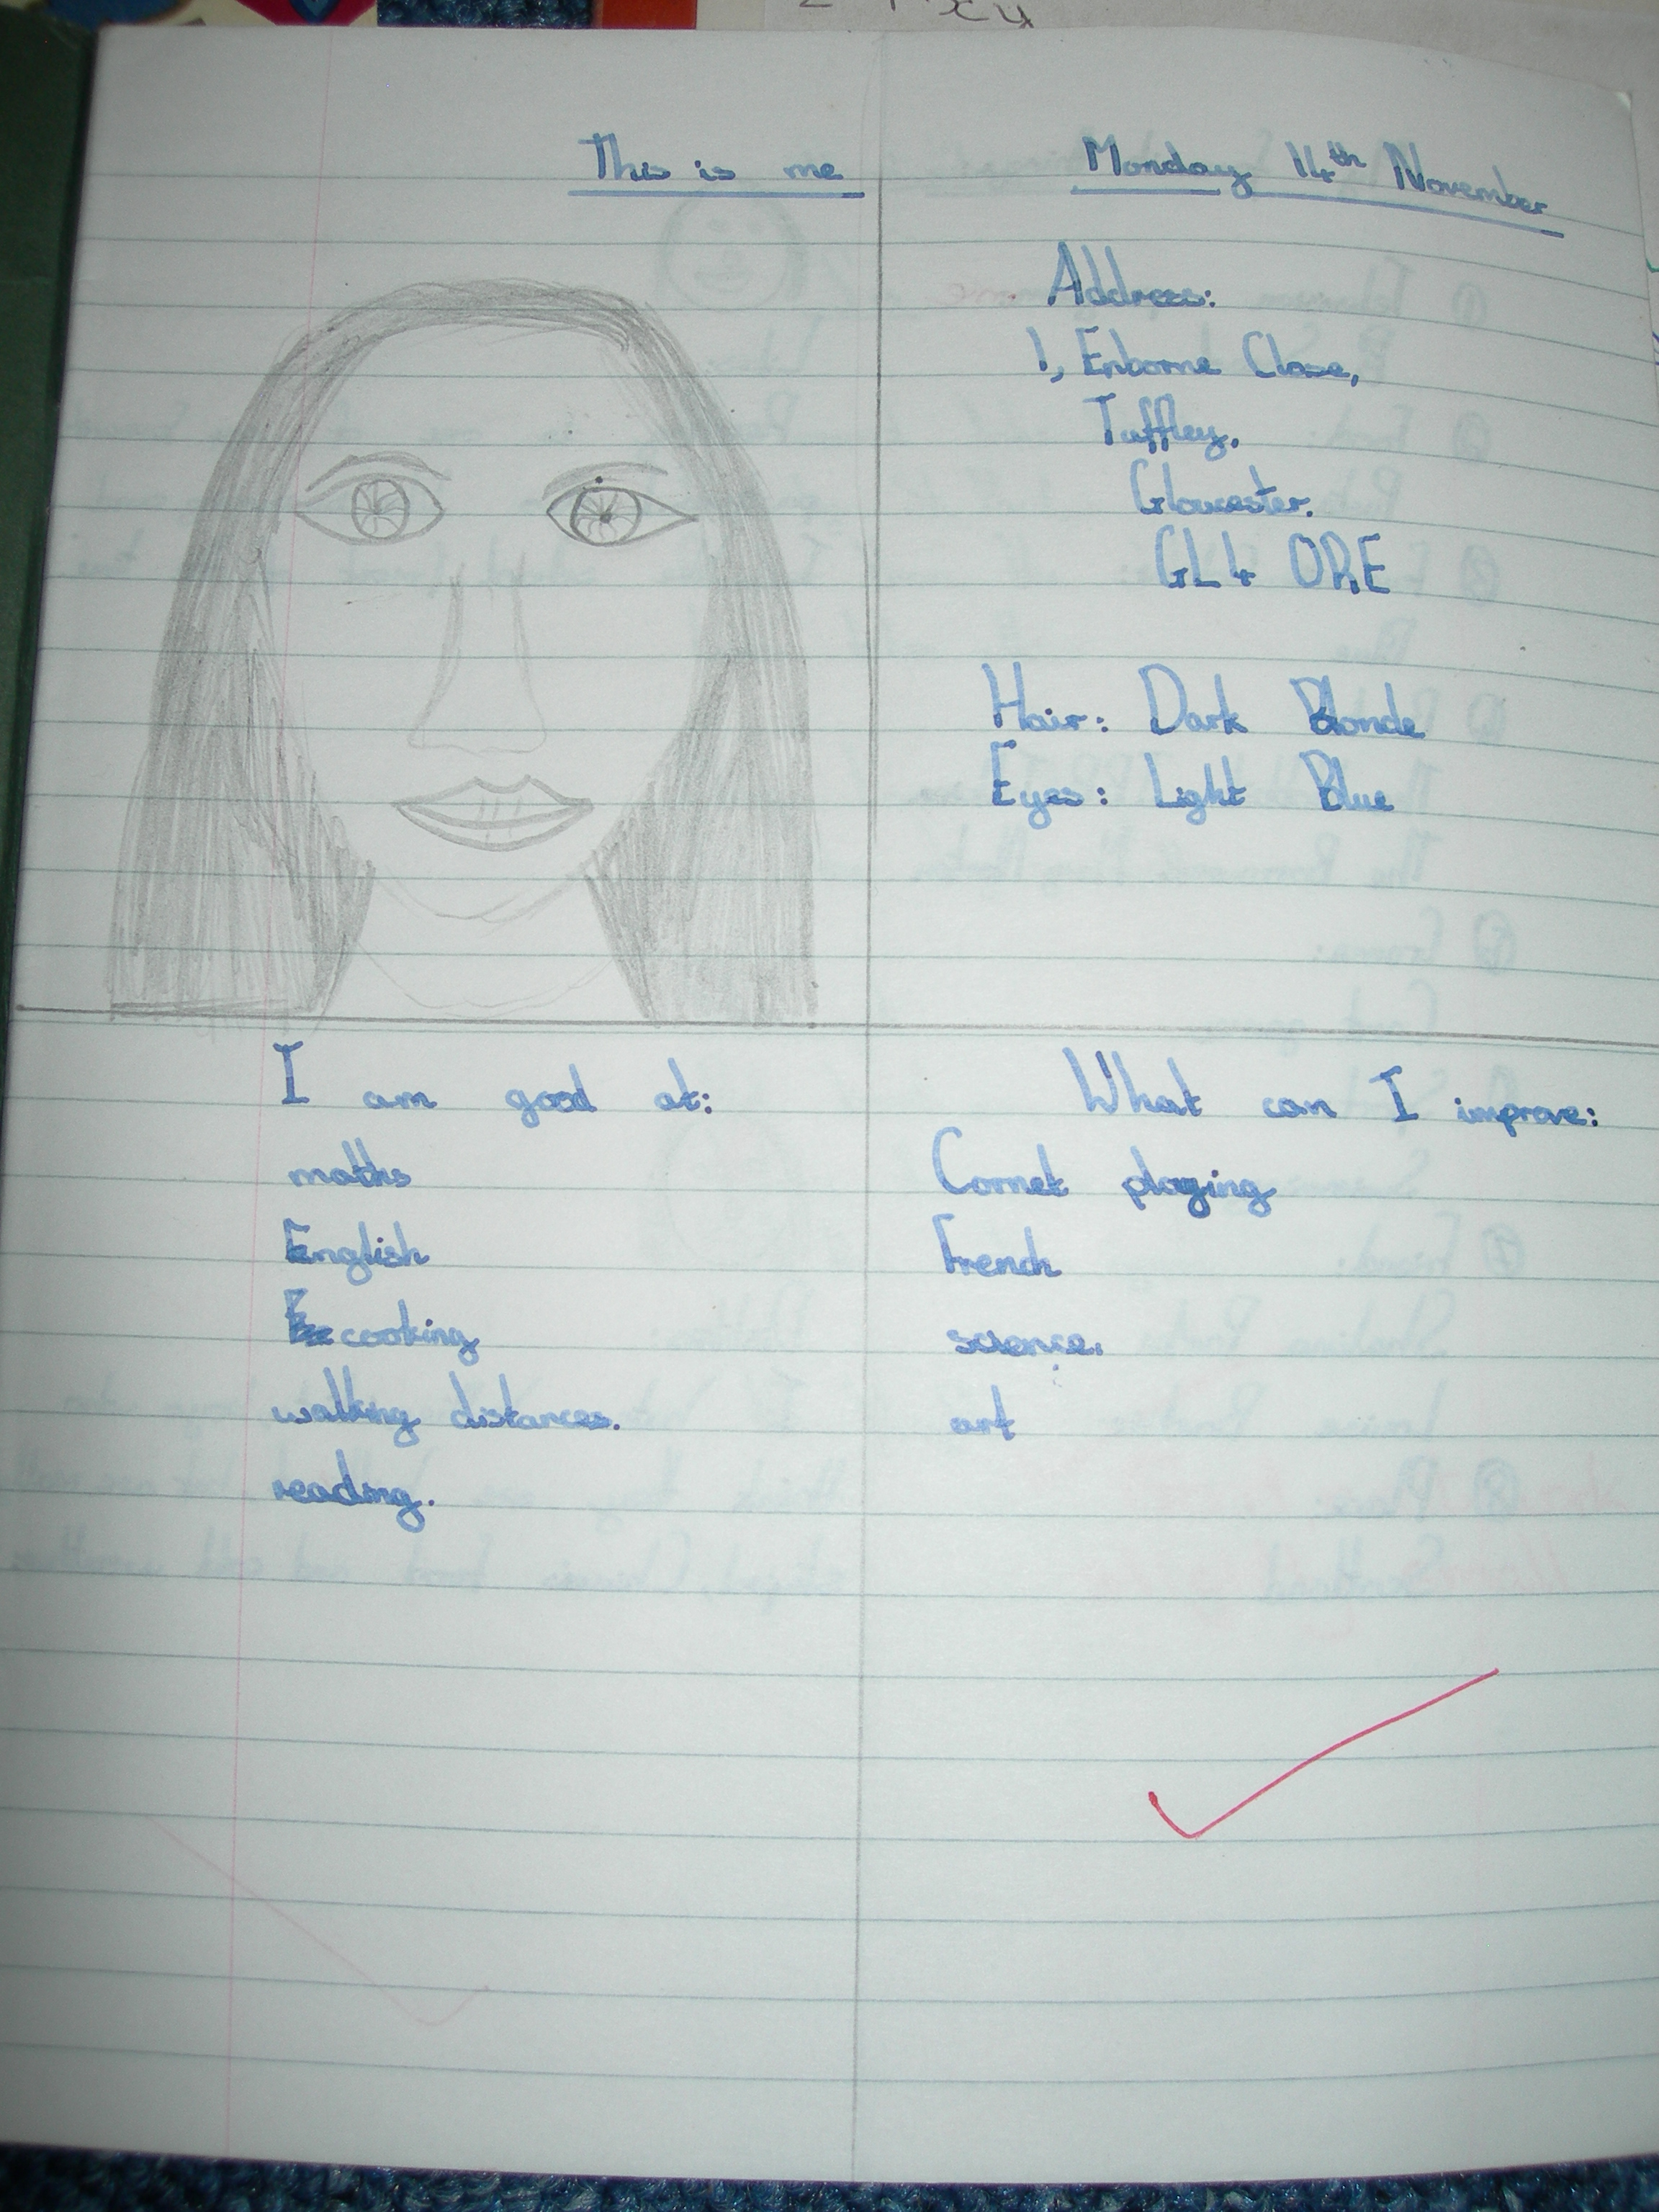 This is me
Monday 14th November
Address:
1, Enborne Close,
Tuffley,
Gloucester.
GL4 0RE
Hair: Dark Blonde
Eyes: Light Blue
I am good at:
maths
English
cooking
walking distances.
reading.
What can I improve:
Cornet playing
French
science.
art